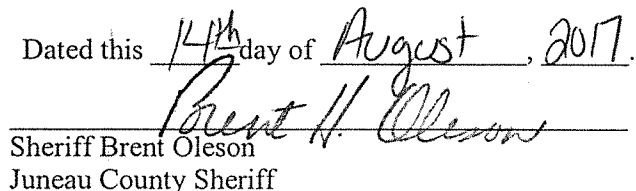 Dated this 14th day of August, 2017.
Brent H. Oleson
Sheriff Brent Oleson
Juneau County Sheriff